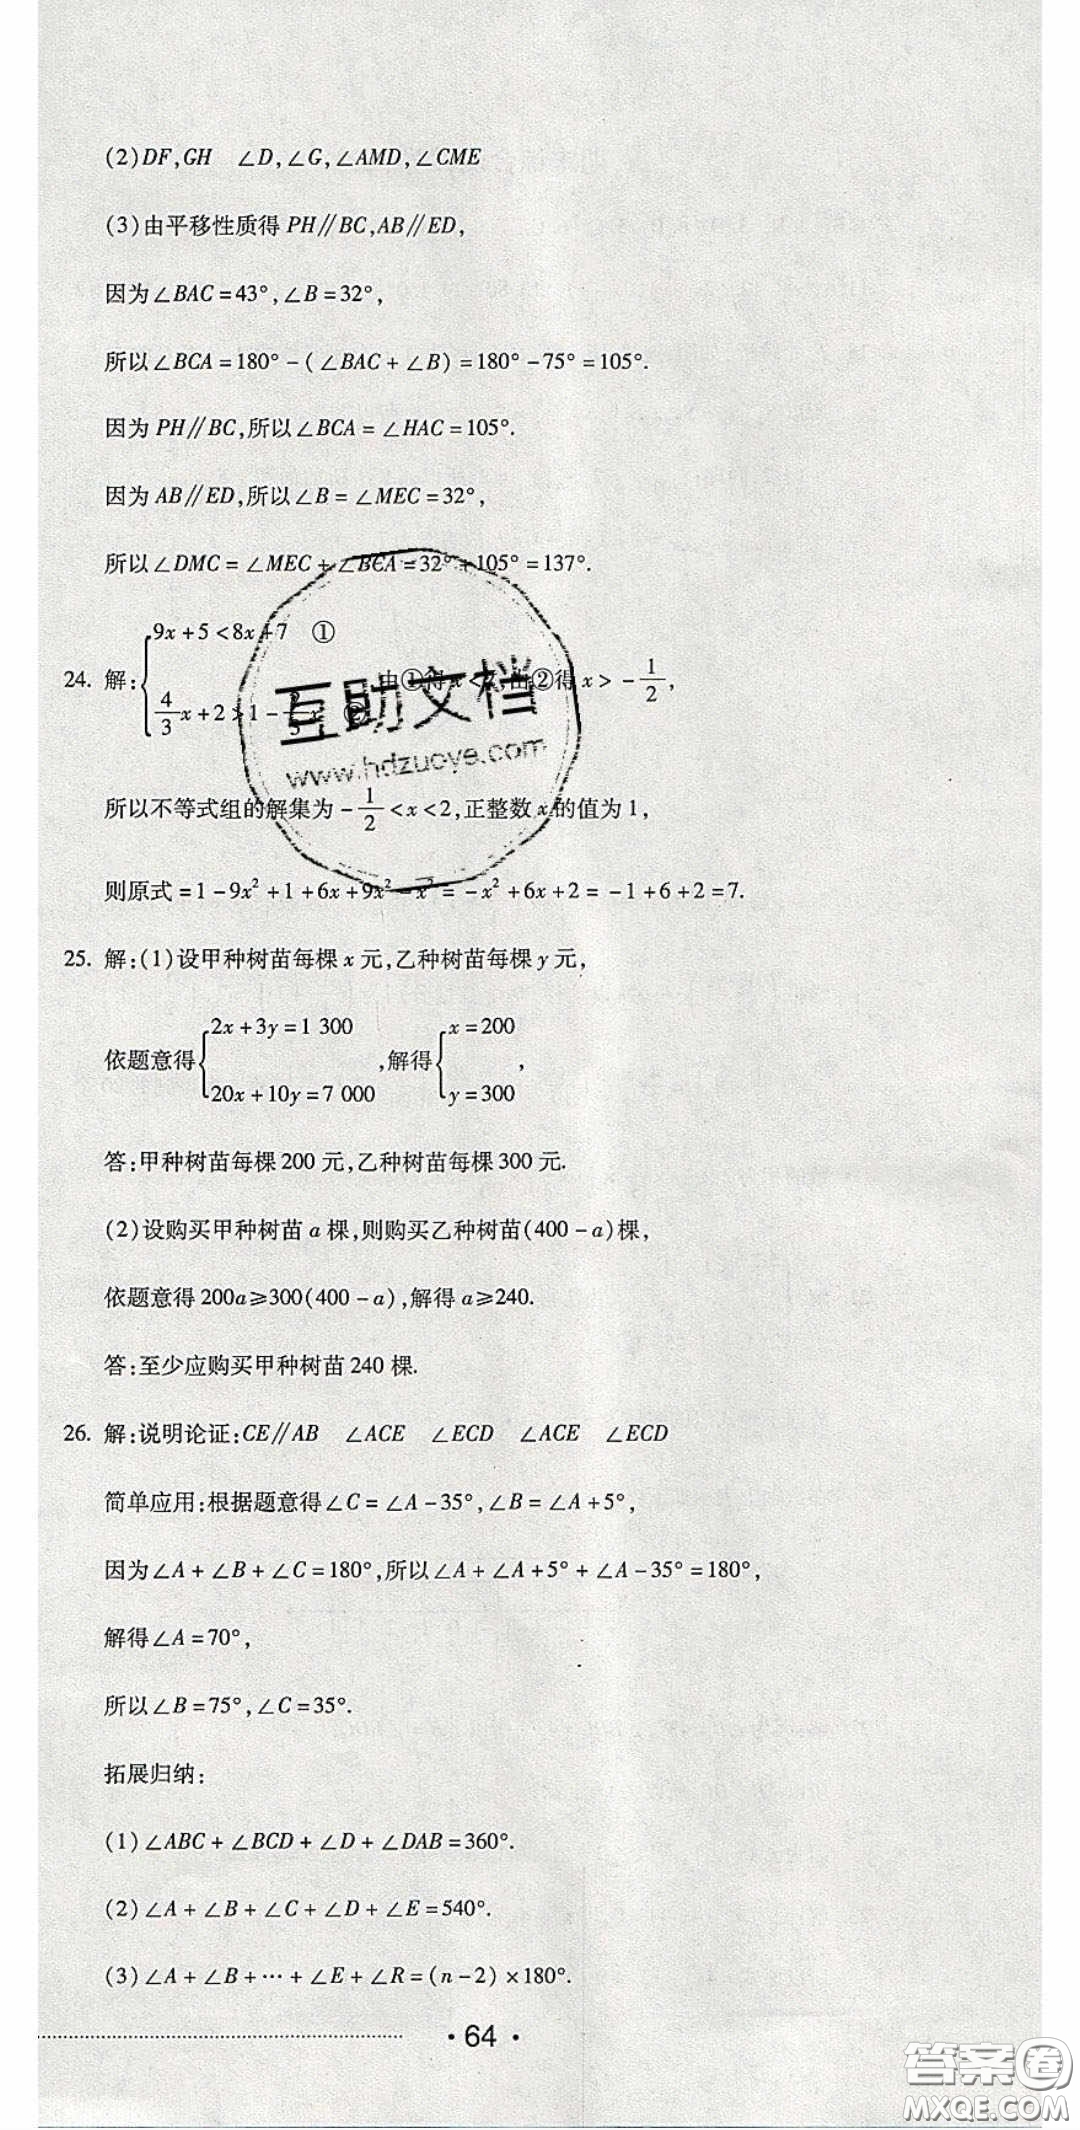 (2)DF,GH ∠D,∠G,∠AMD,∠CME
(3)由平移性质得PH∥BC,AB∥ED,
因为∠BAC=43°,∠B=32°,
所以∠BCA=180°-(∠BAC+∠B)=180°-75°=105°.
因为PH∥BC,所以∠BCA=∠HAC=105°.
因为AB∥ED,所以∠B=∠MEC=32°,
所以∠DMC=∠MEC+∠BCA=32°+105°=137°.
9x+5<8x+7 ①
24. 解: 4/3x+2>1- ② 由①得x< 由②得x>-1/2,
互助文档
www.hdzuoye.com
所以不等式组的解集为-1/2<x<2,正整数x的值为1,
则原式=1-9x²+1+6x+9x²-x²=-x²+6x+2=-1+6+2=7.
25. 解:(1)设甲种树苗每棵x元,乙种树苗每棵y元,
2x+3y=1 300 x=200
依题意得 ,解得 ,
20x+10y=7 000 y=300
答:甲种树苗每棵200元,乙种树苗每棵300元.
(2)设购买甲种树苗a棵,则购买乙种树苗(400-a)棵,
依题意得200a≥300(400-a),解得a≥240.
答:至少应购买甲种树苗240棵.
26. 解:说明论证:CE∥AB ∠ACE ∠ECD ∠ACE ∠ECD
简单应用:根据题意得∠C=∠A-35°,∠B=∠A+5°,
因为∠A+∠B+∠C=180°,所以∠A+∠A+5°+∠A-35°=180°,
解得∠A=70°,
所以∠B=75°,∠C=35°.
拓展归纳:
(1)∠ABC+∠BCD+∠D+∠DAB=360°.
(2)∠A+∠B+∠C+∠D+∠E=540°.
(3)∠A+∠B+…+∠E+∠R=(n-2)×180°.
·64·
答案圈
MXQE.COM